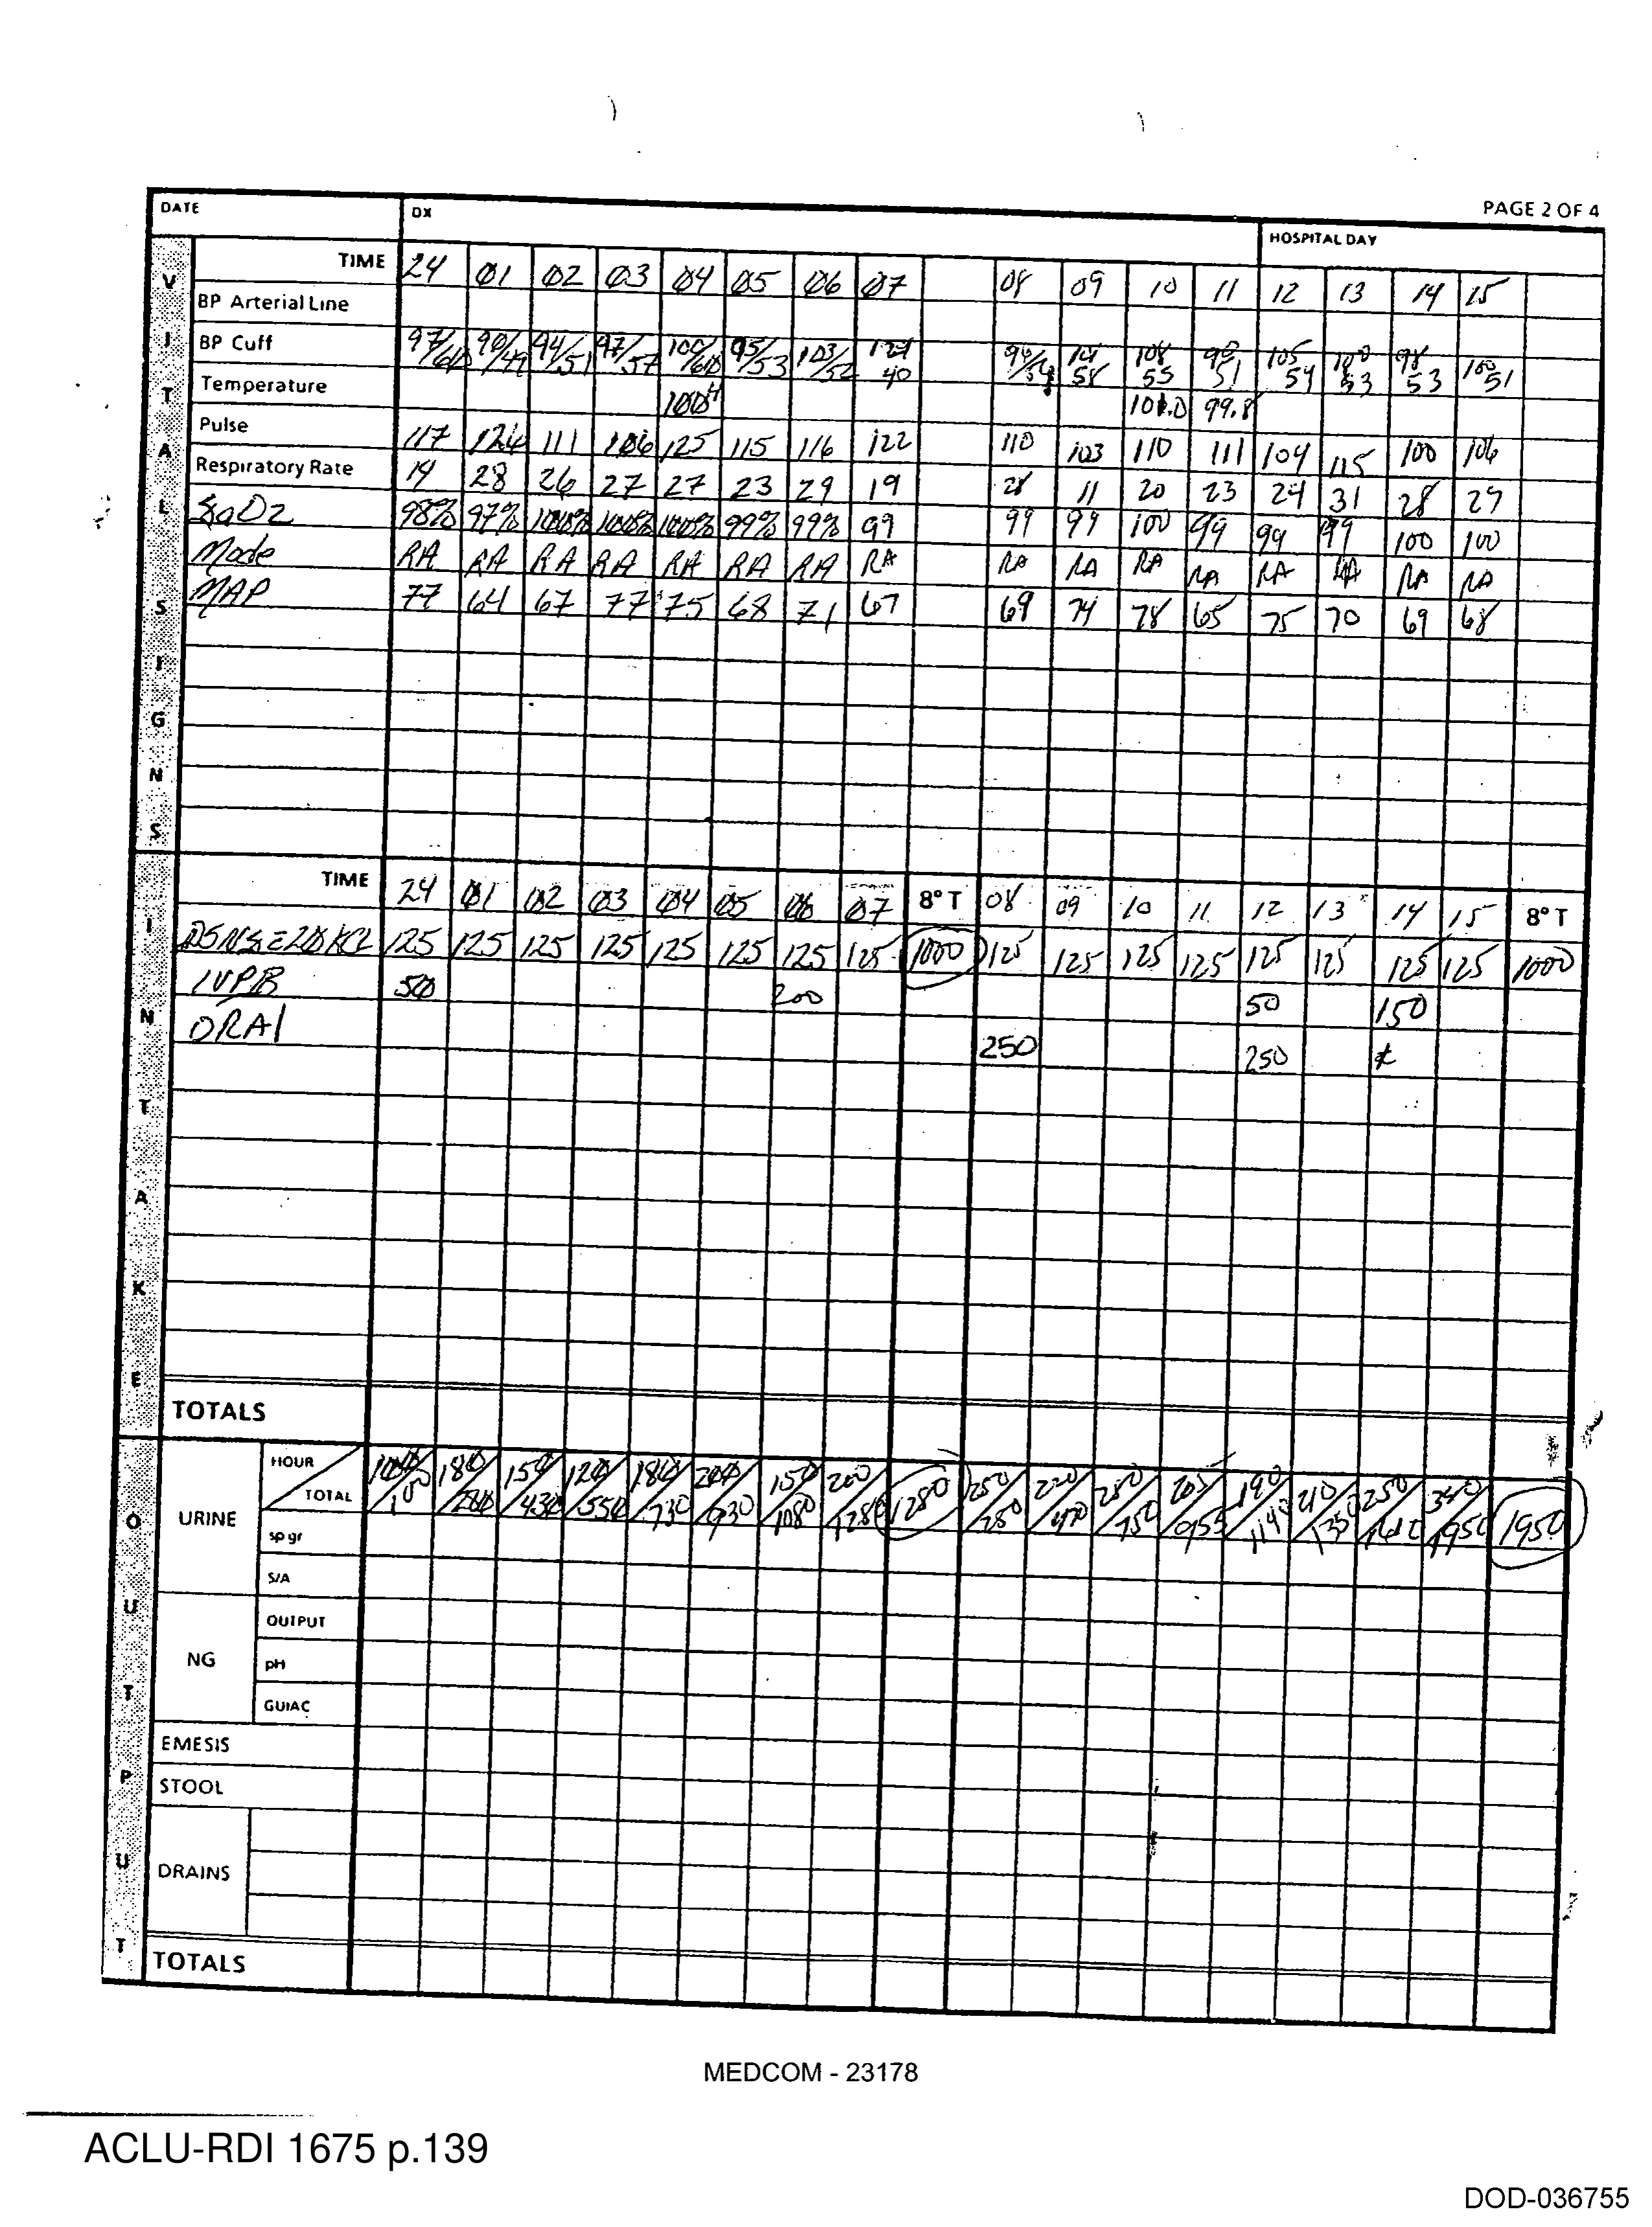 PAGE 2 OF 4
DATE DX HOSPITAL DAY
VITAL SIGNS
TIME 24 01 02 03 04 05 06 07 08 09 10 11 12 13 14 15
BP Arterial Line
BP Cuff 97/60 90/49 94/51 97/57 100/60 95/53 103/52 40 58 108/55 51 105/54 53 98/53 100/51
Temperature 100⁴ 101.0 99.8
Pulse 117 124 111 106 125 115 116 122 110 103 110 111 104 115 100 106
Respiratory Rate 19 28 26 27 27 23 29 19 28 11 20 23 24 31 28 27
SaO2 98% 97% 100% 100% 100% 99% 99% 99 99 99 100 99 99 99 100 100
Mode RA RA RA RA RA RA RA RA RA RA RA RA RA RA RA RA
MAP 77 64 67 77 75 68 71 67 69 74 78 65 75 70 69 68
INTAKE
TIME 24 01 02 03 04 05 06 07 8° T 08 09 10 11 12 13 14 15 8° T
KCL 125 125 125 125 125 125 125 125 1000 125 125 125 125 125 125 125 125 1000
IVPB 50 200 50 150
ORAl 250 250
TOTALS
OUTPUT
URINE HOUR/TOTAL 100/100 180/280 150/430 120/550 180/730 200/930 150/1080 200/1280 1280 250/250 220/470 280/750 205/955 190/1140 210/1350 250 340/1950 1950
sp gr
S/A
NG OUTPUT
pH
GUIAC
EMESIS
STOOL
DRAINS
TOTALS
MEDCOM - 23178
ACLU-RDI 1675 p.139
DOD-036755